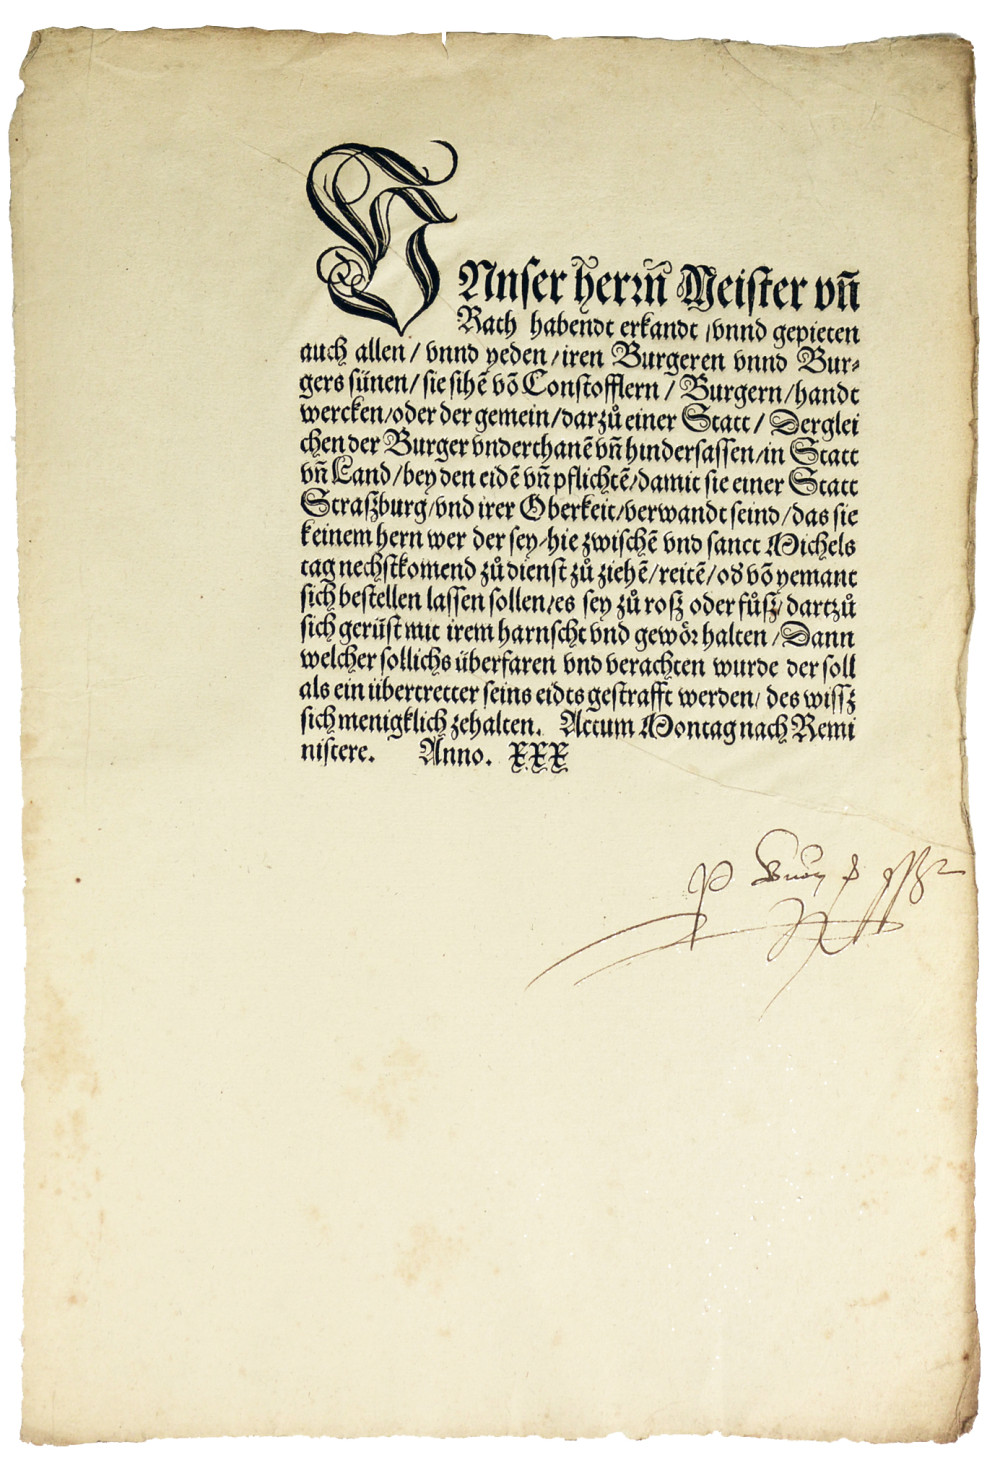 VNnser herꝛñ Meister vñ
Rath habendt erkandt / vnnd gepieten
auch allen / vnnd yeden / iren Burgeren vnnd Bur⸗
gers sünen / sie sihẽ võ Constofflern / Burgern / handt
wercken / oder der gemein / darzů einer Statt / Derglei
chen der Burger vnderthanẽ vñ hindersassen / in Statt
vñ Land / bey den eidẽ vñ pflichtẽ / damit sie einer Statt
Straßburg / vnd irer Oberkeit / verwandt seind / das sie
keinem hern wer der sey / hie zwischẽ vnd sanct Michels
tag nechstkomend zů dienst zů ziehẽ / reitẽ / od võ yemant
sich bestellen lassen sollen / es sey zů roß oder fůß / dartzů
sich gerüst mit irem harnscht vnd gewör halten / Dann
welcher sollichs überfaren vnd verachten wurde der soll
als ein übertretter seins eidts gestrafft werden / des wissz
sich menigklich zehalten. Actum Montag nach Remi
niscere. Anno. XXX